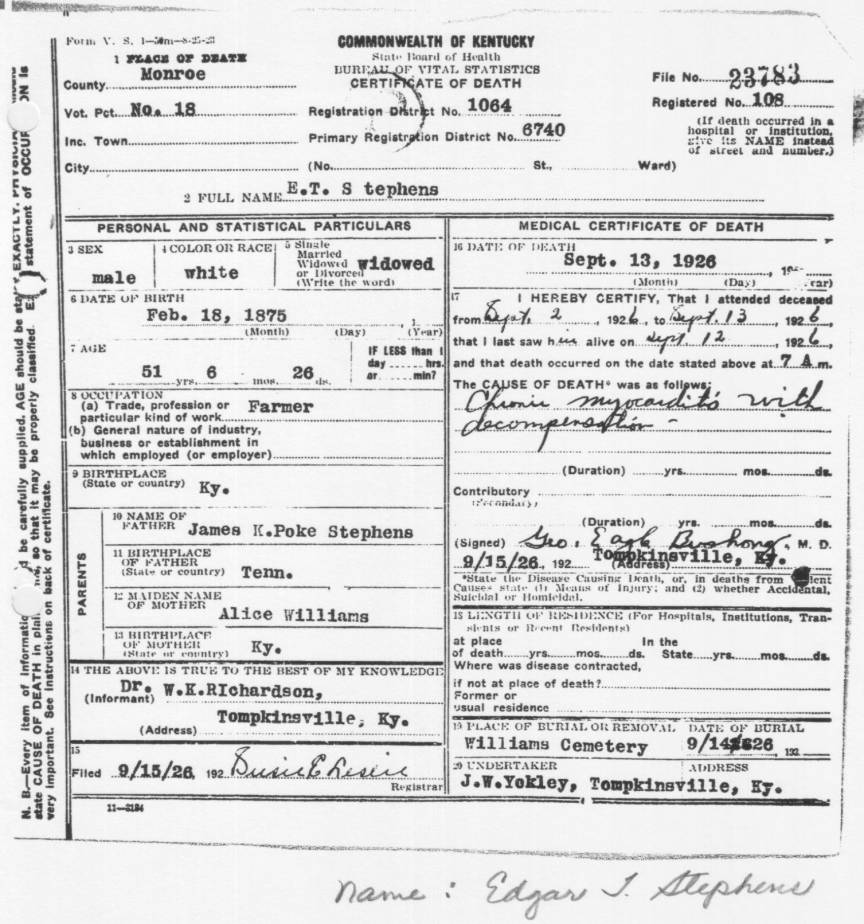 Form V. S. 1—50m—8-25-23
COMMONWEALTH OF KENTUCKY
State Board of Health
BUREAU OF VITAL STATISTICS
CERTIFICATE OF DEATH
1 PLACE OF DEATH
County Monroe
Vot. Pct. No. 18
Inc. Town
City
Registration District No. 1064
Primary Registration District No. 6740
(No. St., Ward)
File No. 23783
Registered No. 108
(If death occurred in a
hospital or institution,
give its NAME instead
of street and number.)
2 FULL NAME E.T. S tephens
PERSONAL AND STATISTICAL PARTICULARS
3 SEX
male
4 COLOR OR RACE
white
5 Single
Married
Widowed
or Divorced
(Write the word)
widowed
6 DATE OF BIRTH
Feb. 18, 1875
(Month) (Day) (Year)
7 AGE
51 yrs. 6 mos. 26 ds.
IF LESS than 1
day hrs.
or min?
8 OCCUPATION
(a) Trade, profession or
particular kind of work Farmer
(b) General nature of industry,
business or establishment in
which employed (or employer)
9 BIRTHPLACE
(State or country) Ky.
PARENTS
10 NAME OF
FATHER James K.Poke Stephens
11 BIRTHPLACE
OF FATHER
(State or country) Tenn.
12 MAIDEN NAME
OF MOTHER Alice Williams
13 BIRTHPLACE
OF MOTHER
(State or country) Ky.
14 THE ABOVE IS TRUE TO THE BEST OF MY KNOWLEDGE
(Informant) Dr. W.K.RIchardson,
(Address) Tompkinsville, Ky.
15
Filed 9/15/26, 192
Registrar
11—3184
MEDICAL CERTIFICATE OF DEATH
16 DATE OF DEATH
Sept. 13, 1926
(Month) (Day) (Year)
17 I HEREBY CERTIFY, That I attended deceased
from Sept. 2, 1926, to Sept. 13, 1926
that I last saw him alive on Sept. 12, 1926,
and that death occurred on the date stated above at 7 A m.
The CAUSE OF DEATH* was as follows:
Chronic myocarditis with
decompensation -
(Duration) yrs. mos. ds.
Contributory
(Secondary)
(Duration) yrs. mos. ds.
(Signed) Geo. Eagle Bushong, M. D.
9/15/26, 192 Tompkinsville, Ky.
(Address)
*State the Disease Causing Death, or, in deaths from Violent
Causes state (1) Means of Injury; and (2) whether Accidental,
Suicidal or Homicidal.
18 LENGTH OF RESIDENCE (For Hospitals, Institutions, Tran-
sients or Recent Residents)
at place In the
of death yrs. mos. ds. State yrs. mos. ds.
Where was disease contracted,
if not at place of death?
Former or
usual residence
19 PLACE OF BURIAL OR REMOVAL
Williams Cemetery
DATE OF BURIAL
9/14 26 192
20 UNDERTAKER ADDRESS
J.W.Yokley, Tompkinsville, Ky.
N. B.—Every item of information be carefully supplied. AGE should be stated EXACTLY.
state CAUSE OF DEATH in plain so that it may be properly classified. statement of
very important. See instructions on back of certificate.
Name : Edgar T. Stephens